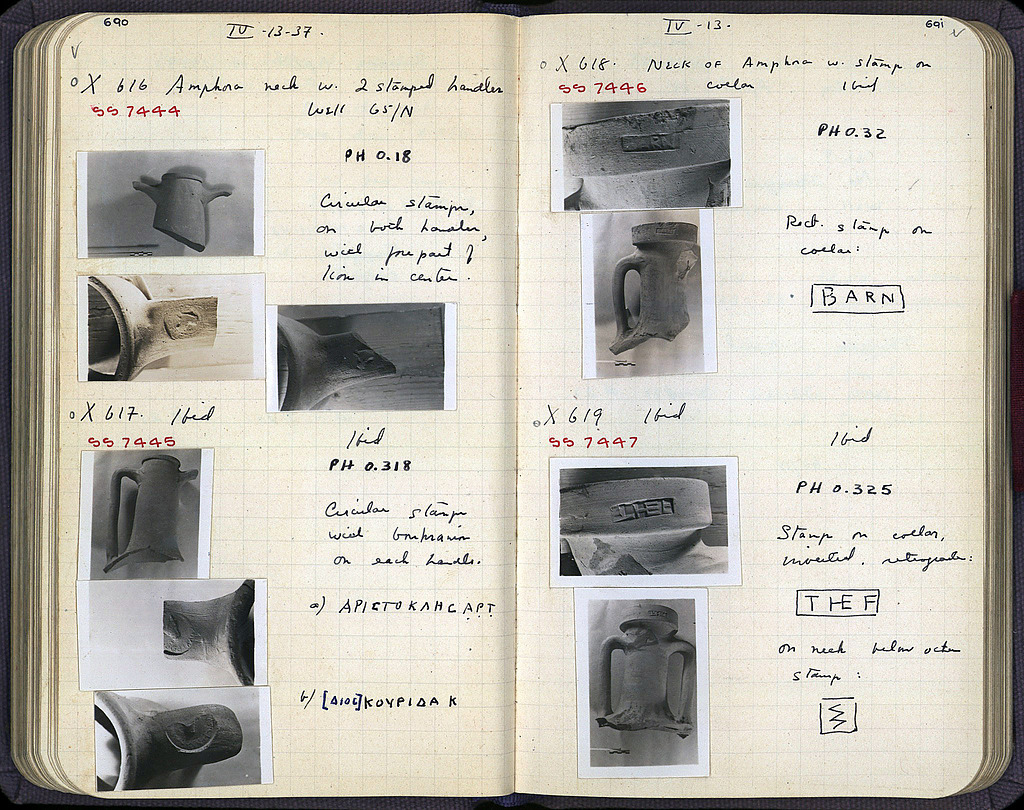 690
IV -13-37.
X 616 Amphora neck w. 2 stamped handles
SS 7444 Well G5/N
PH 0.18
Circular stamps,
on both handles,
with forepart of
lion in center.
X 617. Ibid
SS 7445 Ibid
PH 0.318
Circular stamps
with
on each handle.
a) ΑΡΙϹΤΟΚΛΗϹ ΑΡΤ
b) [ΔΙΟϹ]ΚΟΥΡΙΔΑ Κ
691
IV -13.
X 618. Neck of Amphora w. stamp on
SS 7446 collar Ibid
PH 0.32
Rect. stamp on
collar:
BARN
X 619 Ibid
SS 7447 Ibid
PH 0.325
Stamp on collar,
inverted, retrograde:
THEF
on neck below other
stamp: